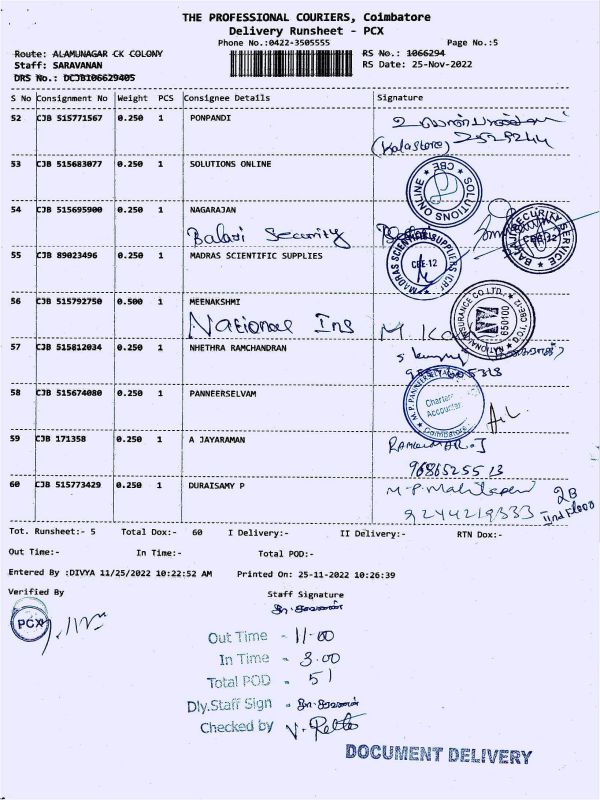 THE PROFESSIONAL COURIERS, Coimbatore
Delivery Runsheet - PCX
Phone No.:0422-3505555 Page No.:5
Route: ALAMUNAGAR CK COLONY RS No.: 1066294
Staff: SARAVANAN RS Date: 25-Nov-2022
DRS No.: DCJB106629405
S No Consignment No Weight PCS Consignee Details Signature
52 CJB 515771567 0.250 1 PONPANDI
(Kalastore)
53 CJB 515683077 0.250 1 SOLUTIONS ONLINE
SOLUTIONS ONLINE CBE
54 CJB 515695900 0.250 1 NAGARAJAN
Balaji Security
BALAJI SECURITY SERVICE CBE-12
55 CJB 89023496 0.250 1 MADRAS SCIENTIFIC SUPPLIES
MADRAS SCIENTIFIC SUPPLIERS CBE-12
56 CJB 515792750 0.500 1 MEENAKSHMI
National Ins
650100
57 CJB 515812034 0.250 1 NHETHRA RAMCHANDRAN
58 CJB 515674080 0.250 1 PANNEERSELVAM
Chartered Accountant Coimbatore
59 CJB 171358 0.250 1 A JAYARAMAN
9686525513
60 CJB 515773429 0.250 1 DURAISAMY P
9244219333 2B IInd Floor
Tot. Runsheet:- 5 Total Dox:- 60 I Delivery:- II Delivery:- RTN Dox:-
Out Time:- In Time:- Total POD:-
Entered By :DIVYA 11/25/2022 10:22:52 AM Printed On: 25-11-2022 10:26:39
Verified By Staff Signature
PCX
Out Time - 11-00
In Time - 3.00
Total POD - 51
Dly.Staff Sign -
Checked by
DOCUMENT DELIVERY